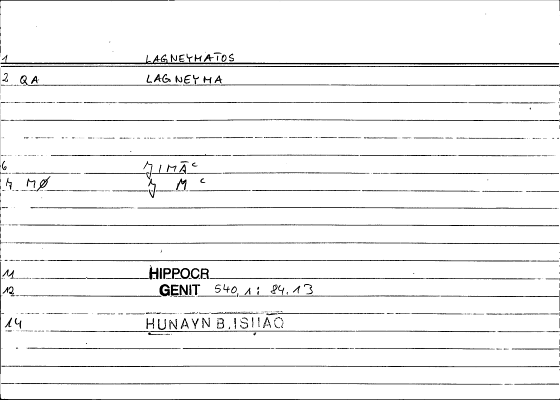 1 LAGNEYMATOS
2 QA LAGNEYMA
6 ʒIMĀᶜ
7 MØ ʒ M ᶜ
11 HIPPOCR
12 GENIT 540,1: 84.13
14 HUNAYN B.ISHAQ